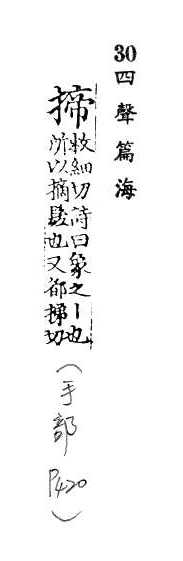 30 四聲篇海
揥
敕細切詩曰象之丨也
所以摘髮也又都切
（手部 P420）